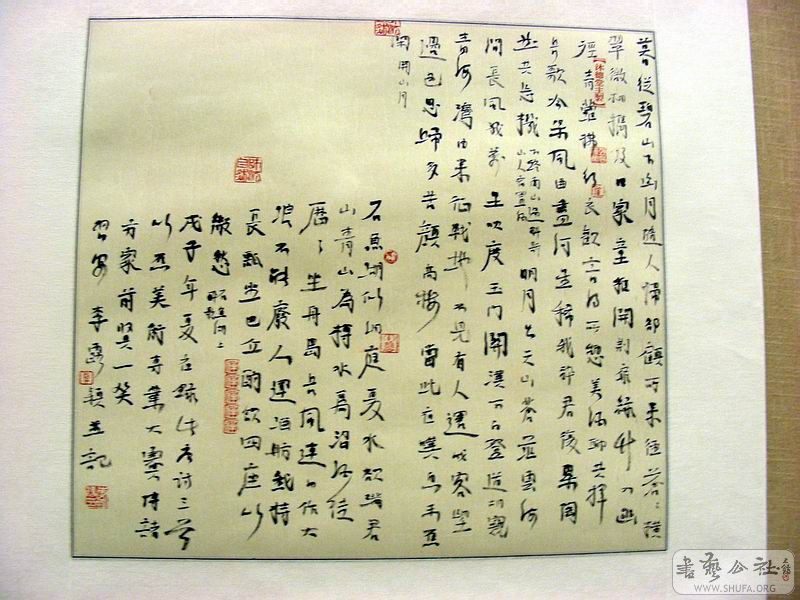 暮從碧山下山月隨人歸卻顧所來徑蒼蒼橫
翠微相攜及田家童稚開荊扉綠竹入幽
徑青蘿拂行衣歡言得所憩美酒聊共揮
長歌吟松風曲盡河星稀我醉君復樂陶
然共忘機 下終南山過斛斯山人宿置酒 明月出天山蒼茫雲海
間長風幾萬里吹度玉門關漢下白登道胡窺
青海灣由來征戰地不見有人還戍客望
邊色思歸多苦顏高樓當此夜嘆息未應
閑 關山月
石魚湖似洞庭夏水欲滿君
山青山為樽水為沼酒徒
歷歷坐洲島長風連日作大
浪不能廢人運酒舫我持
長瓢坐巴丘酌飲四座以
散愁
戊子年夏 錄唐詩三首
以 美術專業大 博諸
方家前賢一笑
李 並記
書藝公社
WWW.SHUFA.ORG